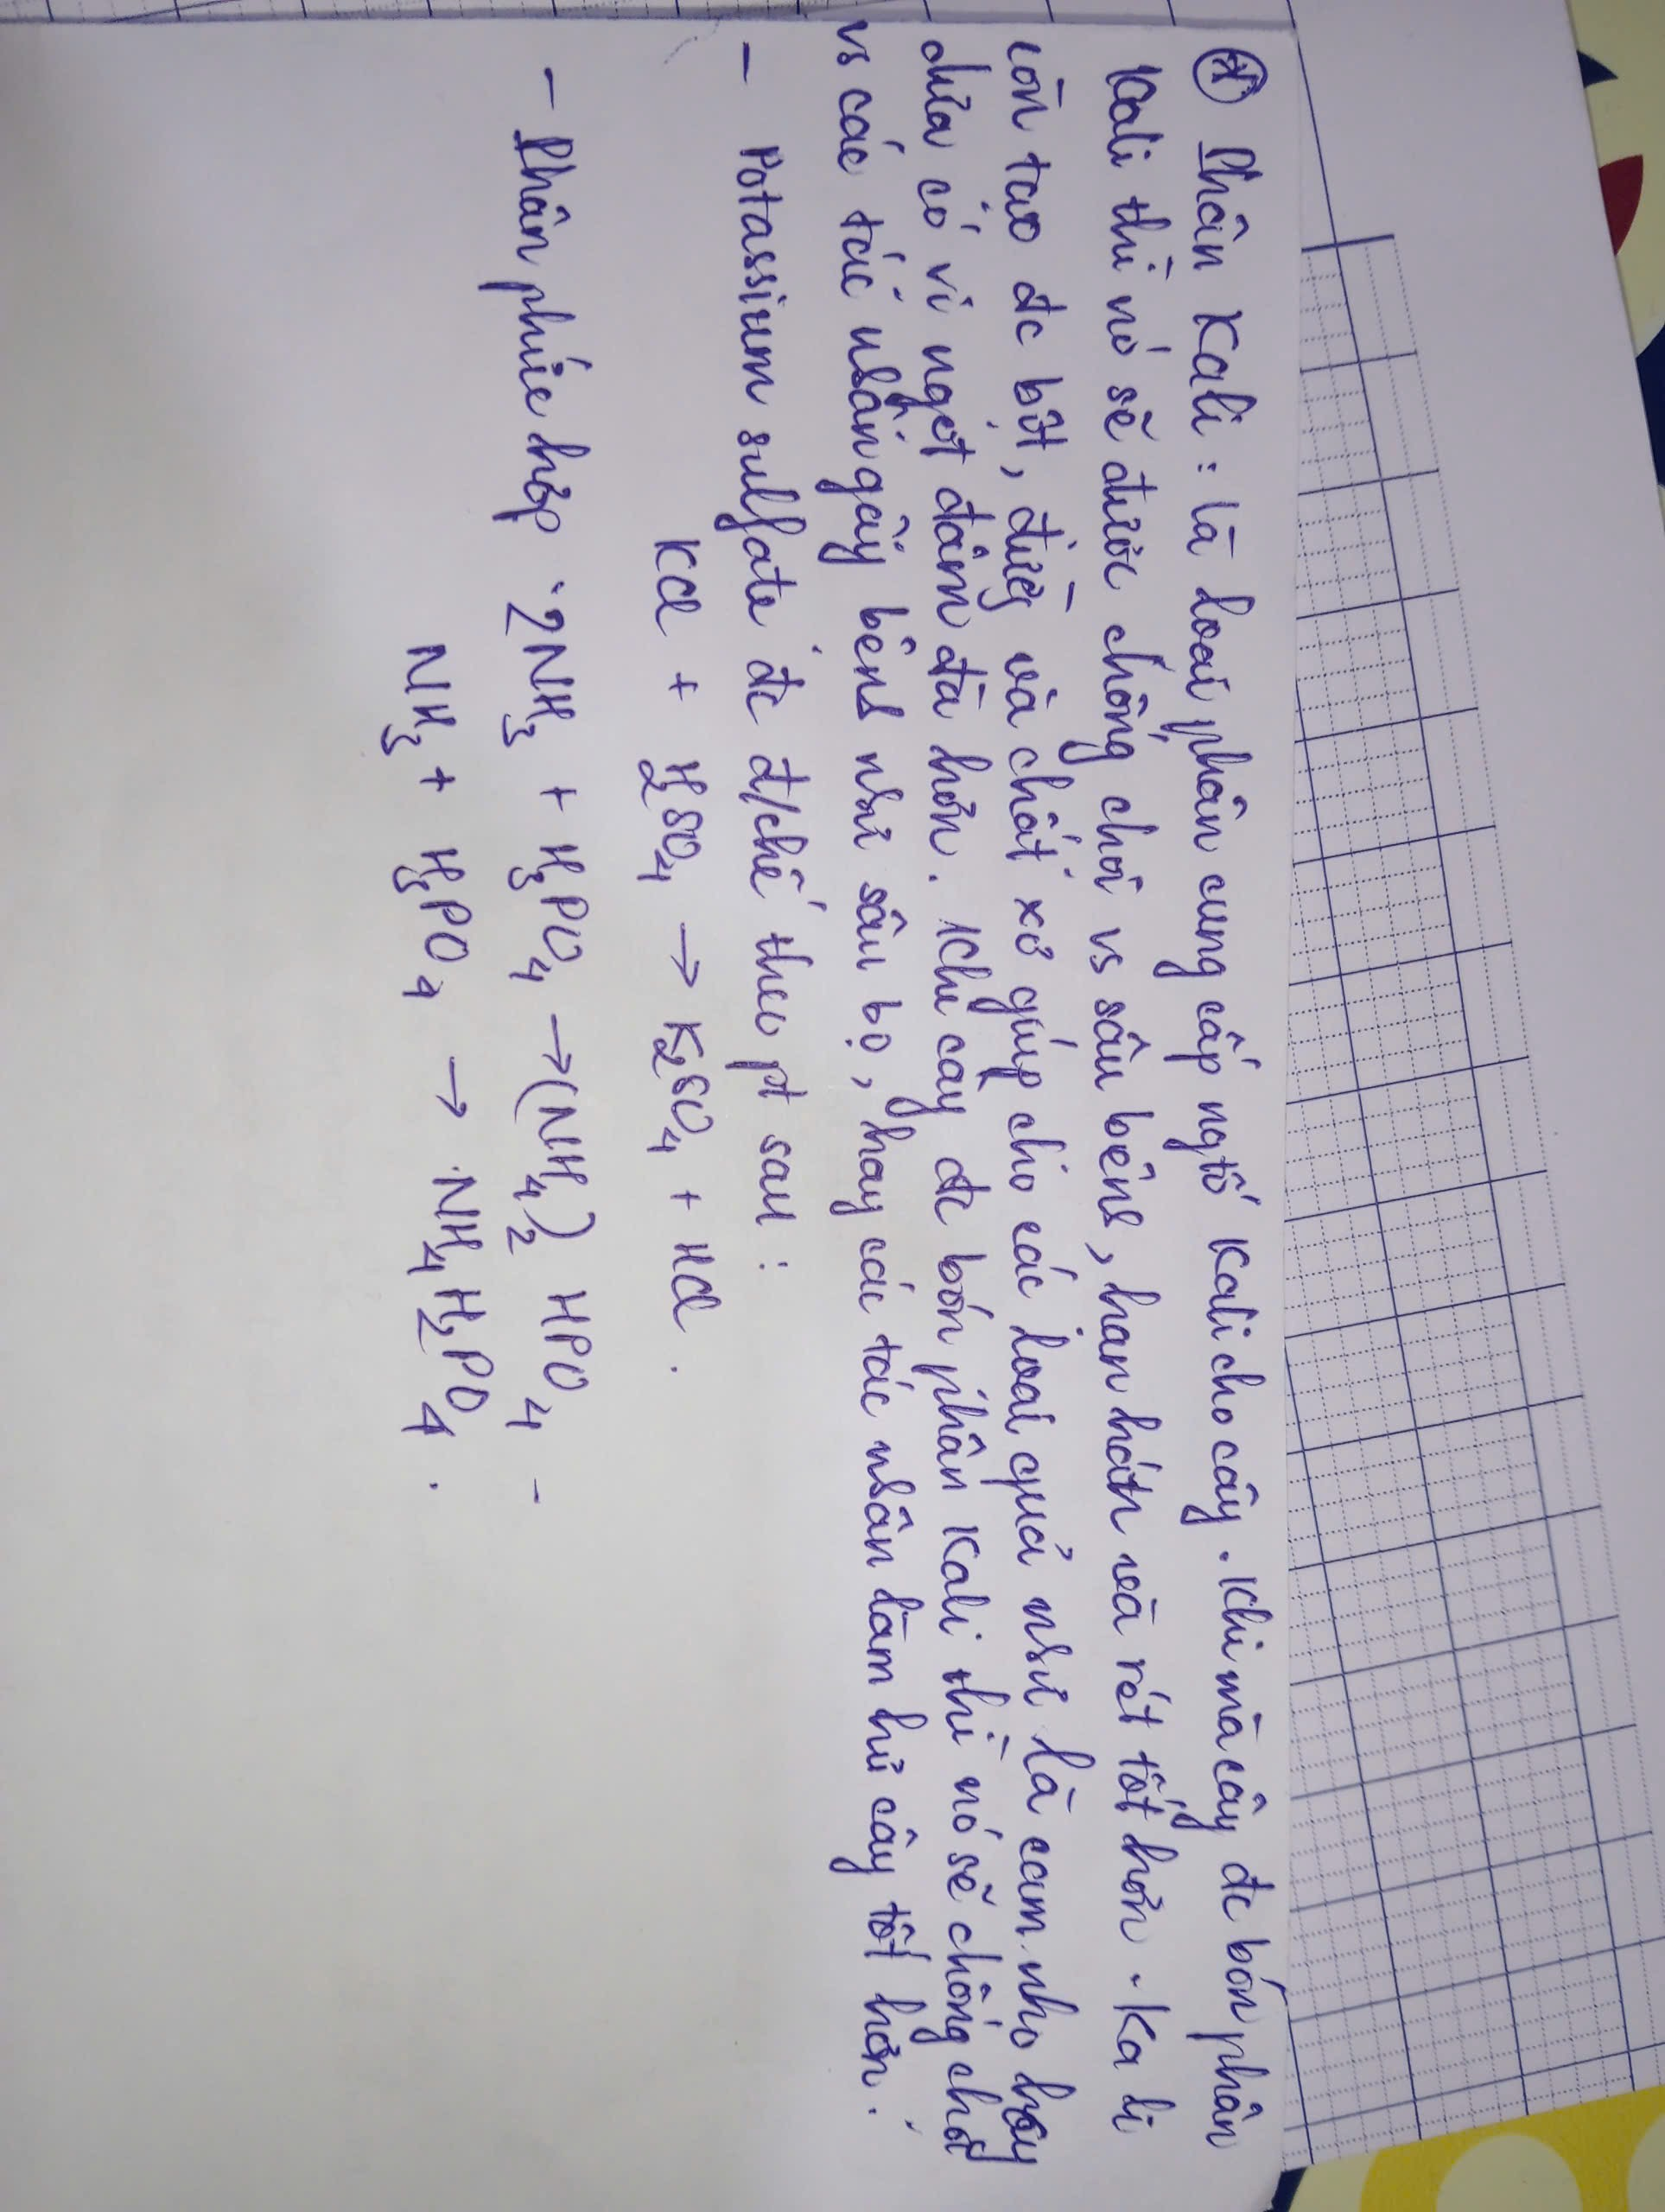 * Phân Kali : là loại phân cung cấp ngtố Kali cho cây. Khi mà cây đc bón phân
Kali thì nó sẽ được chống chơi vs sâu bệnh, hạn hán và rét tốt hơn. Ka li
còn tạo đc bột, đường và chất xơ giúp cho các loại quả như là cam nho hay
dứa có vị ngọt đậm đà hơn. Khi cây đc bón phân Kali thì nó sẽ chống chơi
vs các tác nhân gây bệnh như sâu bọ, hay các tác nhân làm hư cây tốt hơn.
- Potassium sulfate đc đ/chế theo pt sau :
KCl + H₂SO₄ → K₂SO₄ + HCl .
- Phân phức hợp : 2NH₃ + H₃PO₄ → (NH₄)₂ HPO₄ -
NH₃ + H₃PO₄ → NH₄H₂PO₄ .